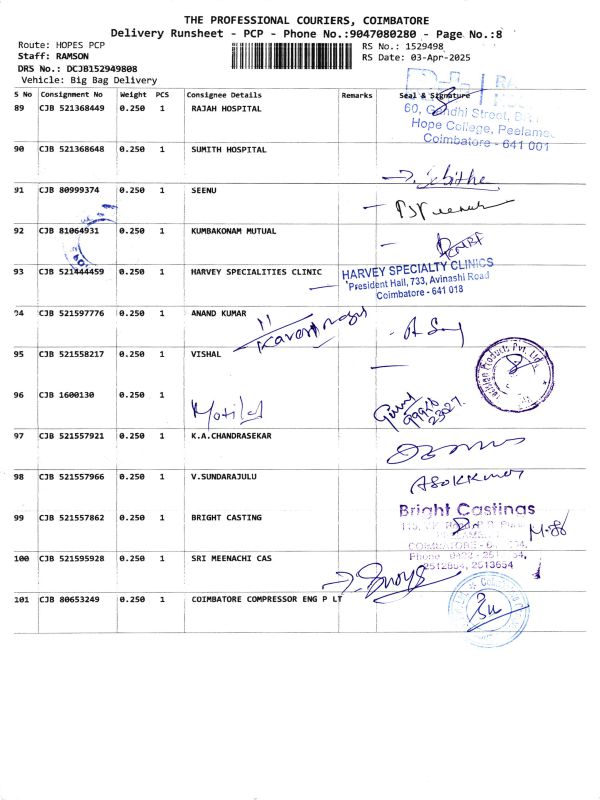 THE PROFESSIONAL COURIERS, COIMBATORE
Delivery Runsheet - PCP - Phone No.:9047080280 - Page No.:8
Route: HOPES PCP
RS No.: 1529498
Staff: RAMSON
RS Date: 03-Apr-2025
DRS No.: DCJB152949808
Vehicle: Big Bag Delivery
S No Consignment No Weight PCS Consignee Details Remarks Seal & Signature
89 CJB 521368449 0.250 1 RAJAH HOSPITAL
60, Gandhi Street,
Hope College, Peelamedu
Coimbatore - 641 001
90 CJB 521368648 0.250 1 SUMITH HOSPITAL
91 CJB 80999374 0.250 1 SEENU
92 CJB 81064931 0.250 1 KUMBAKONAM MUTUAL
93 CJB 521444459 0.250 1 HARVEY SPECIALITIES CLINIC
HARVEY SPECIALTY CLINICS
President Hall, 733, Avinashi Road
Coimbatore - 641 018
94 CJB 521597776 0.250 1 ANAND KUMAR
95 CJB 521558217 0.250 1 VISHAL
Products Pvt. Ltd.
96 CJB 1600130 0.250 1
Motilal
97 CJB 521557921 0.250 1 K.A.CHANDRASEKAR
98 CJB 521557966 0.250 1 V.SUNDARAJULU
ASOKKumar
99 CJB 521557862 0.250 1 BRIGHT CASTING
Bright Castings
COIMBATORE
Phone
2512654, 2513654
100 CJB 521595928 0.250 1 SRI MEENACHI CAS
101 CJB 80653249 0.250 1 COIMBATORE COMPRESSOR ENG P LT